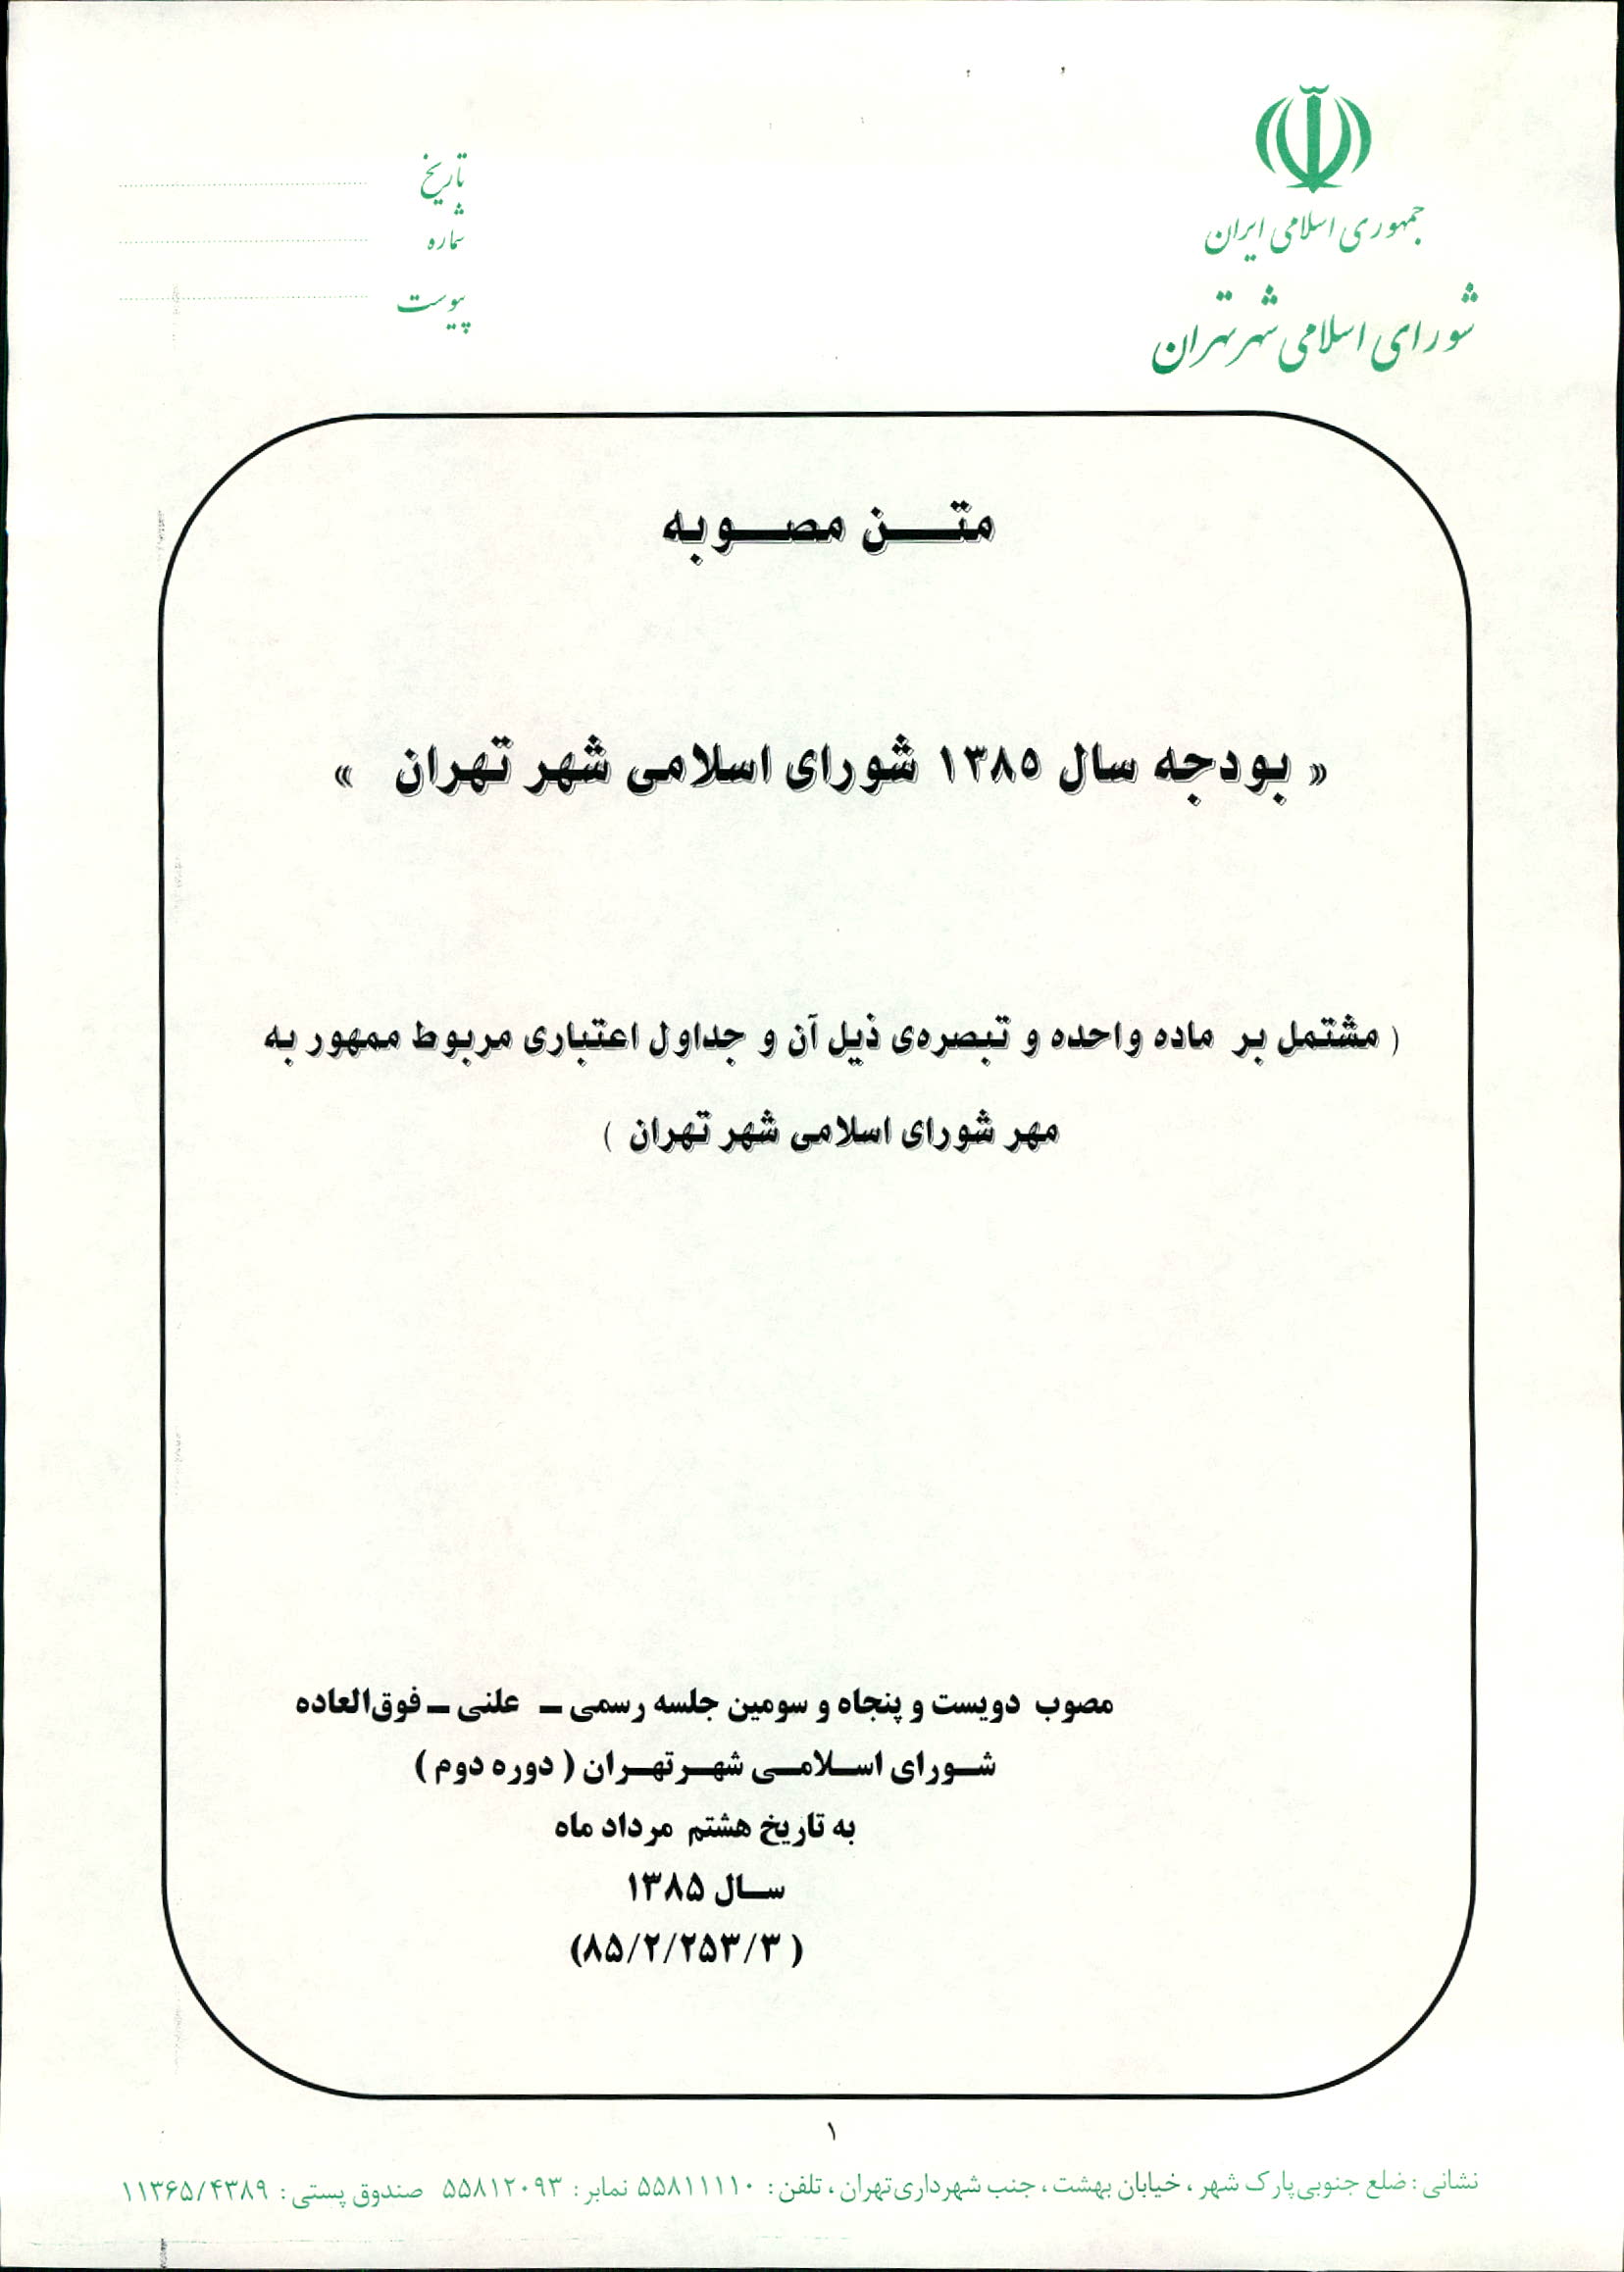 جمهوری اسلامی ایران
شورای اسلامی شهر تهران
تاریخ
شماره
پیوست
متن مصوبه
« بودجه سال ۱۳۸۵ شورای اسلامی شهر تهران »
( مشتمل بر ماده واحده و تبصره‌ی ذیل آن و جداول اعتباری مربوط ممهور به
مهر شورای اسلامی شهر تهران )
مصوب دویست و پنجاه و سومین جلسه رسمی – علنی – فوق‌العاده
شورای اسلامی شهر تهران ( دوره دوم )
به تاریخ هشتم مرداد ماه
سال ۱۳۸۵
(۸۵/۲/۲۵۳/۳ )
۱
نشانی : ضلع جنوبی پارک شهر ، خیابان بهشت ، جنب شهرداری تهران ، تلفن : ۵۵۸۱۱۱۱۰ نمابر : ۵۵۸۱۲۰۹۳ صندوق پستی : ۱۱۳۶۵/۴۳۸۹